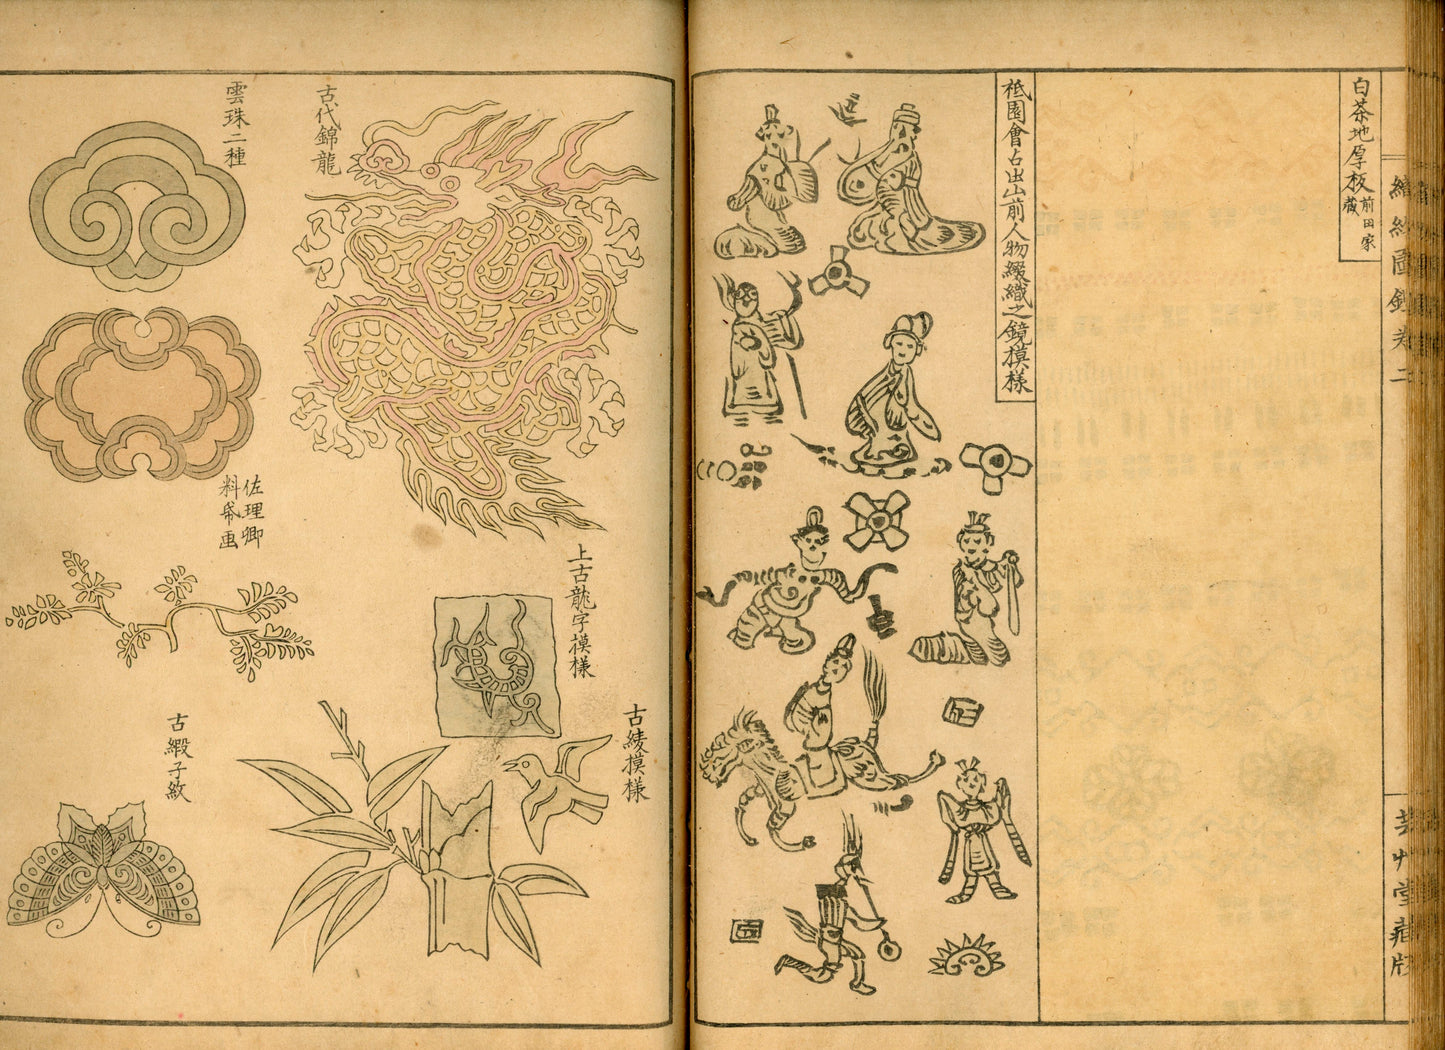 白茶地厚板 前田家
蔵
祗園會占出山前人物綴織之鏡模様
古代錦龍
雲珠二種
佐理卿
料帋画
上古龍字模様
古綾模様
古緞子紋
芸艸堂蔵版